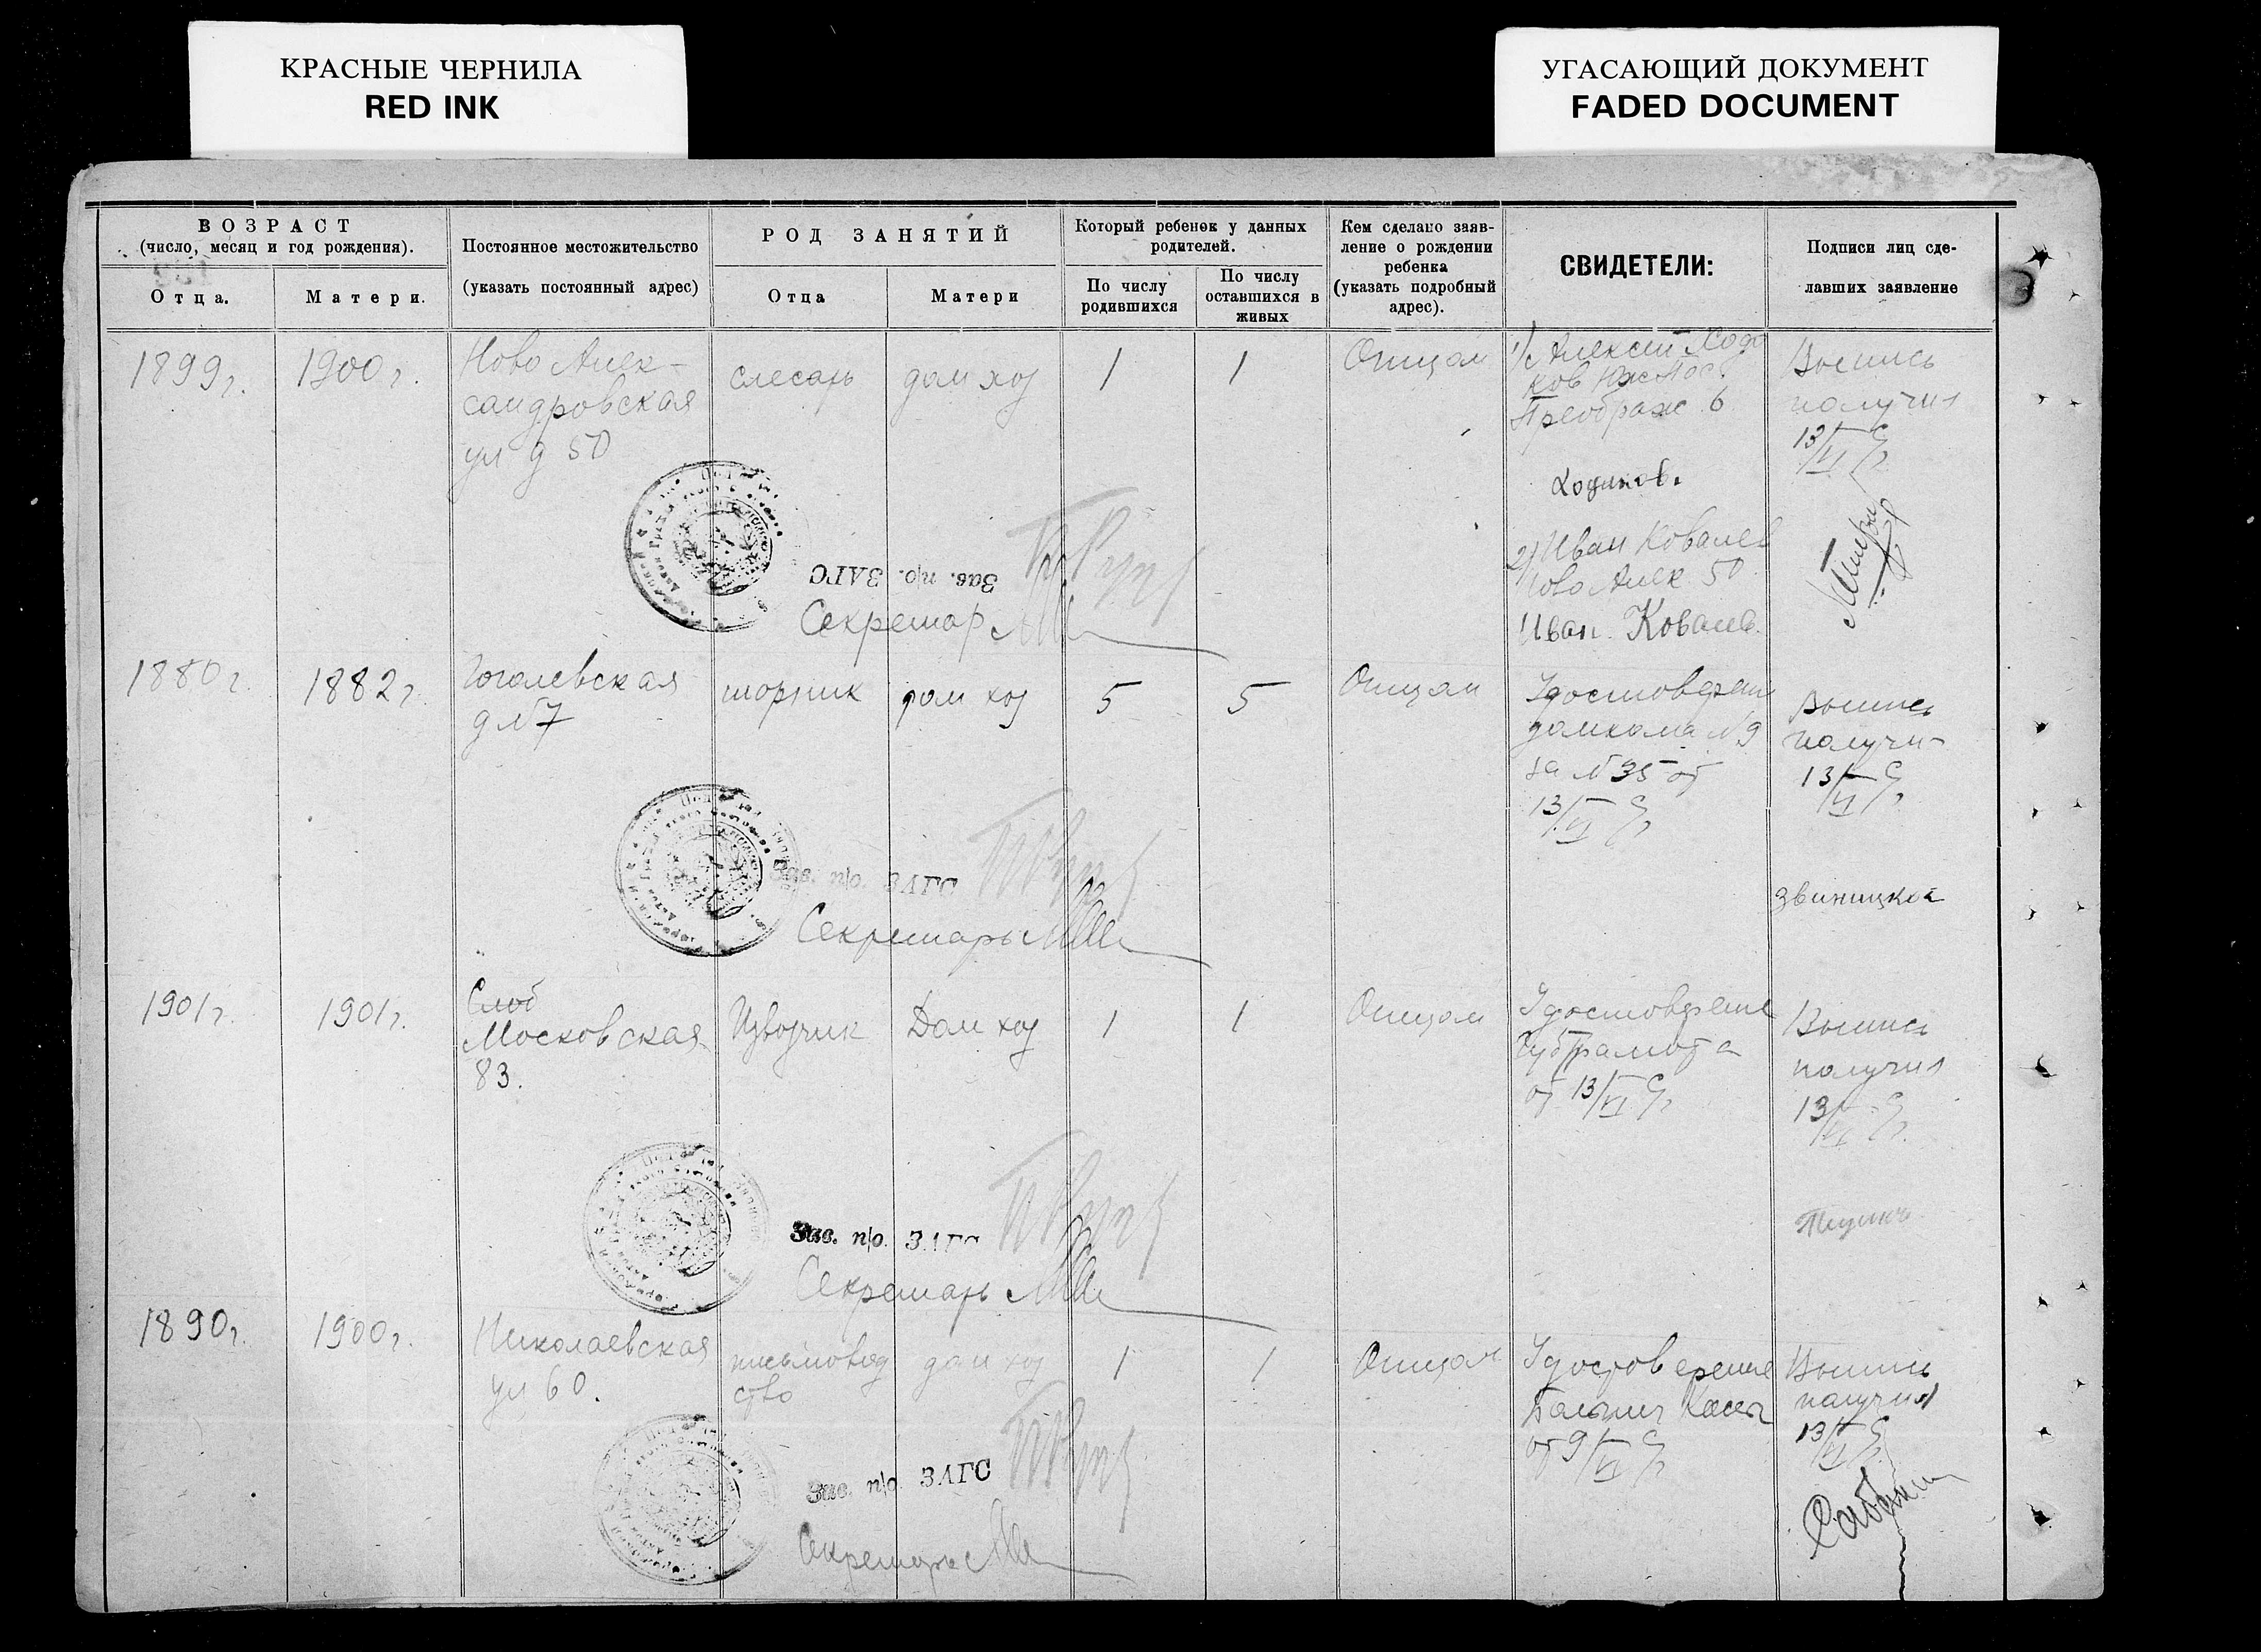 КРАСНЫЕ ЧЕРНИЛА
RED INK
УГАСАЮЩИЙ ДОКУМЕНТ
FADED DOCUMENT
ВОЗРАСТ
(число, месяц и год рождения).
Отца.
Матери.
Постоянное местожительство
(указать постоянный адрес)
РОД ЗАНЯТИЙ
Отца
Матери
Который ребенок у данных
родителей.
По числу
родившихся
По числу
оставшихся в
живых
Кем сделано заяв-
ление о рождении
ребенка
(указать подробный
адрес).
СВИДЕТЕЛИ:
Подписи лиц сде-
лавших заявление
1899 г.
1900 г.
Ново Алек-
сандровская
ул д 50
слесарь
дом хоз
1
1
Отцом
1) Алексей
Преображ 6
2) Иван Ковалев
Ново Алек 50
Иван Ковалев.
Выпись
получил
13/VI
Зав. п/о. ЗАГС
Секретар
1880 г.
1882 г.
Гоголевская
д № 7
шорник
дом хоз
5
5
Отцом
Удостоверен
домкома № 9
за № 35 от
13/VI
Выпись
получил
13/VI
Звиницкой
Зав. п/о. ЗАГС
Секретарь
1901 г.
1901 г.
Слоб
Московская
83.
Извозчик
Дом хоз
1
1
Отцом
Удостоверение
от 13/VI
Выпись
получил
13/VI
Зав. п/о. ЗАГС
Секретарь
1890 г.
1900 г.
Николаевская
ул 60.
письмовод
ство
дом хоз
1
1
Отцом
Удостоверение
Больнич Кассы
от 9/VI
Выпись
получил
13/VI
Зав. п/о. ЗАГС
Секретарь